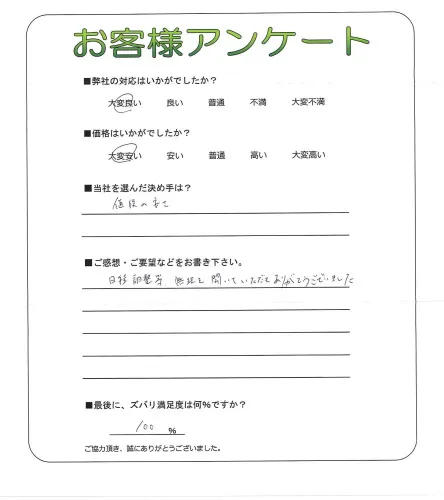 お客様アンケート
■弊社の対応はいかがでしたか？
大変良い 良い 普通 不満 大変不満
■価格はいかがでしたか？
大変安い 安い 普通 高い 大変高い
■当社を選んだ決め手は？
値段の安さ
■ご感想・ご要望などをお書き下さい。
日程調整等 無理を聞いていただきありがとうございました
■最後に、ズバリ満足度は何%ですか？
100 %
ご協力頂き、誠にありがとうございました。